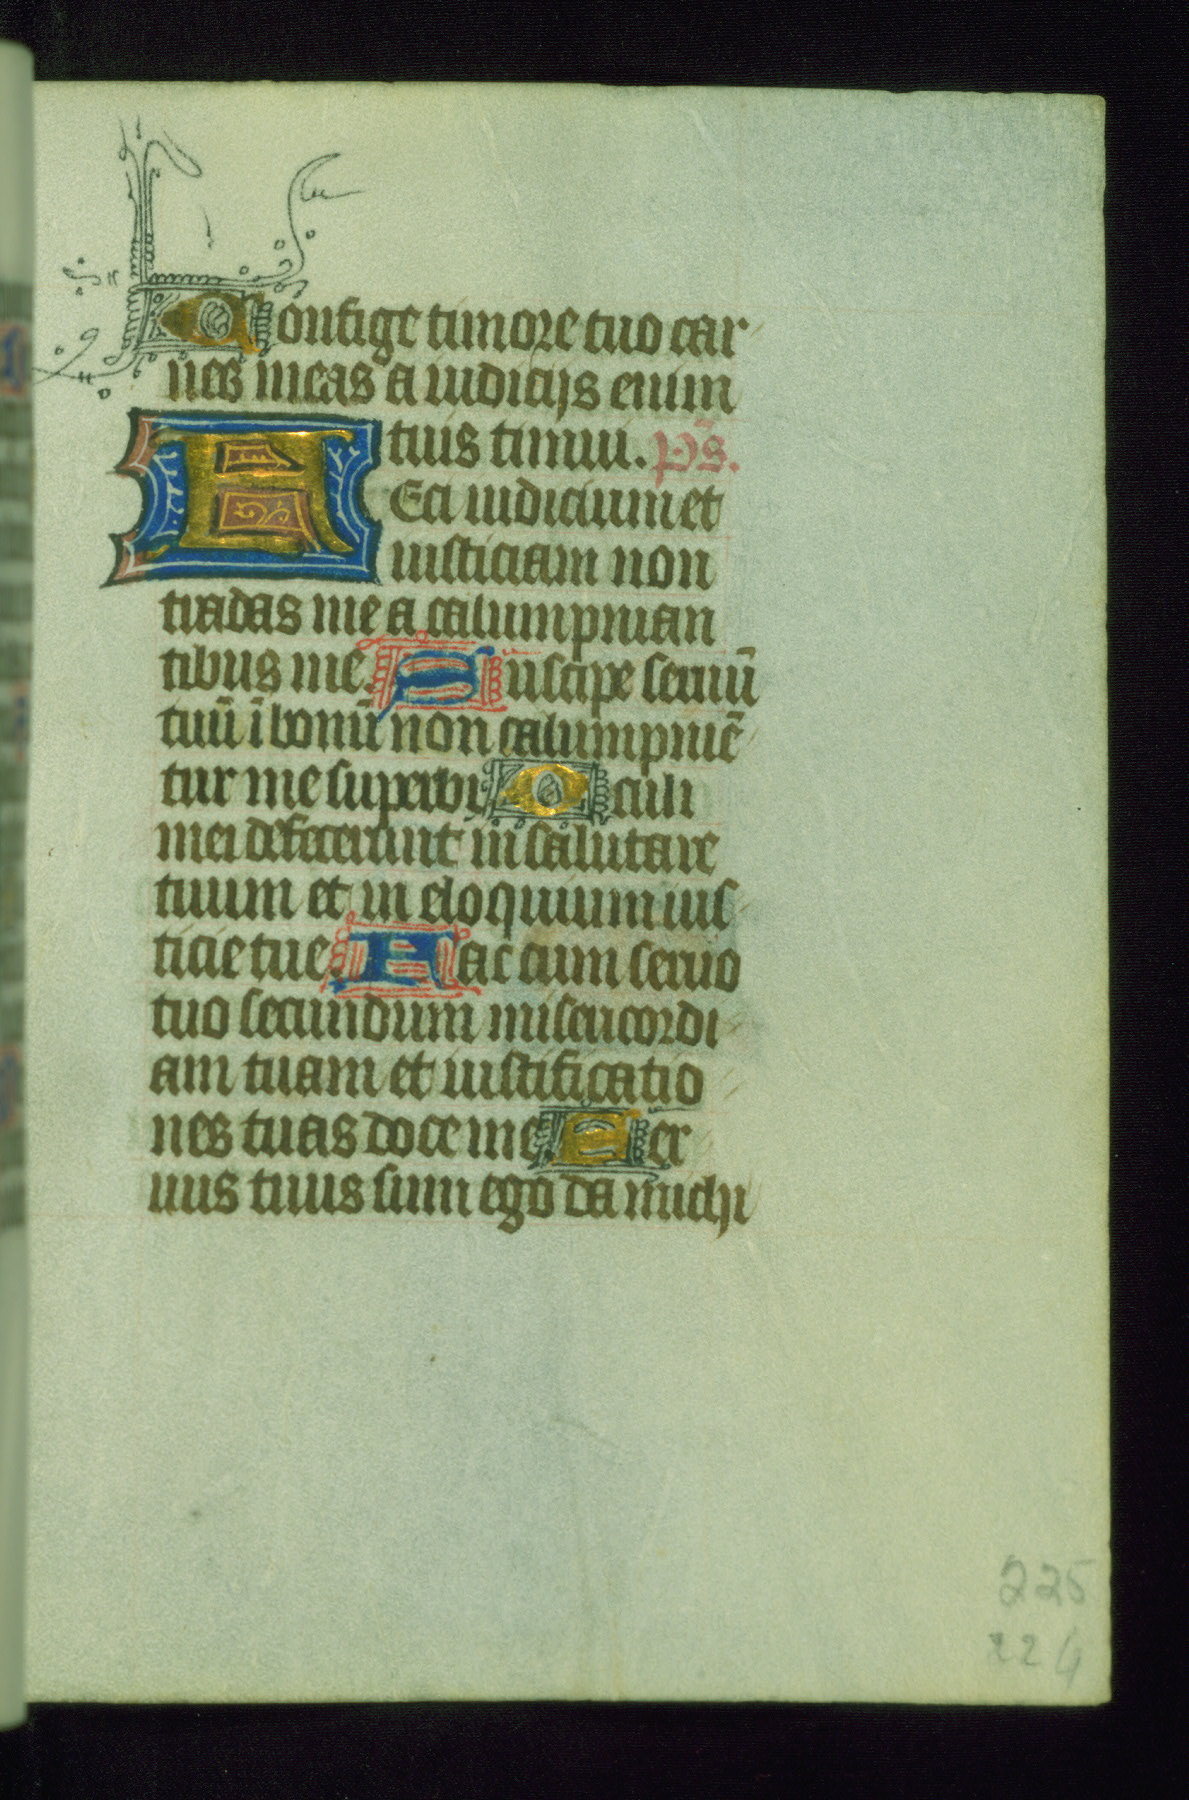 Confige timore tuo car
nes meas a iudicijs enim
tuis timui. p̄s.
FEci iudicium et
iusticiam non
tradas me a calumpnian
tibus me. Suscipe seruū
tuū ī bonū non calumpniē
tur me superbi Oculi
mei defecerunt in salutare
tuum et in eloquium ius
ticie tue. Fac cum seruo
tuo secundum misericordi
am tuam et iustificatio
nes tuas doce me. Ser
uus tuus sum ego da michi
225
224